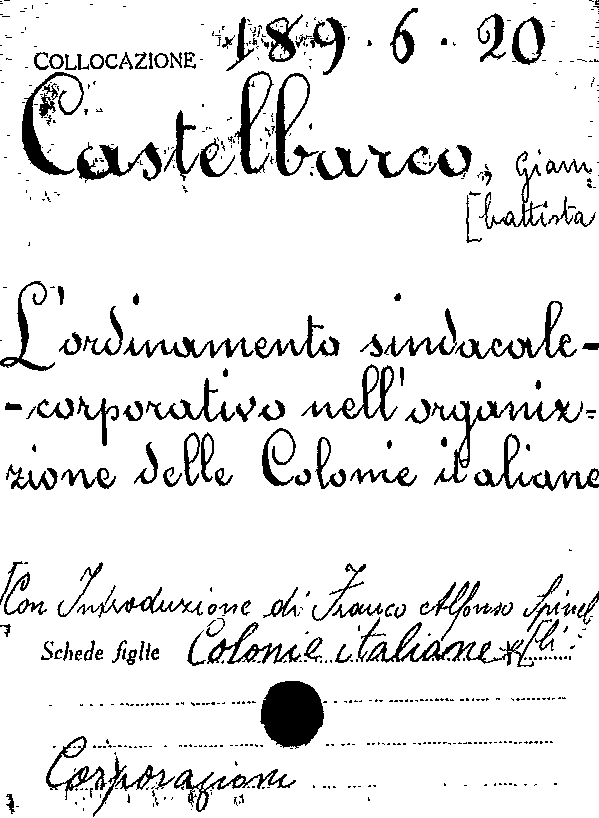 COLLOCAZIONE 189.6.20
Castelbarco, Giam-
[battista
L'ordinamento sindacale-
-corporativo nell'organiz=
zione delle Colonie italiane
[Con Introduzione di Franco Alfonso Spinel
[li.
Schede figlie Colonie italiane *
Corporazioni